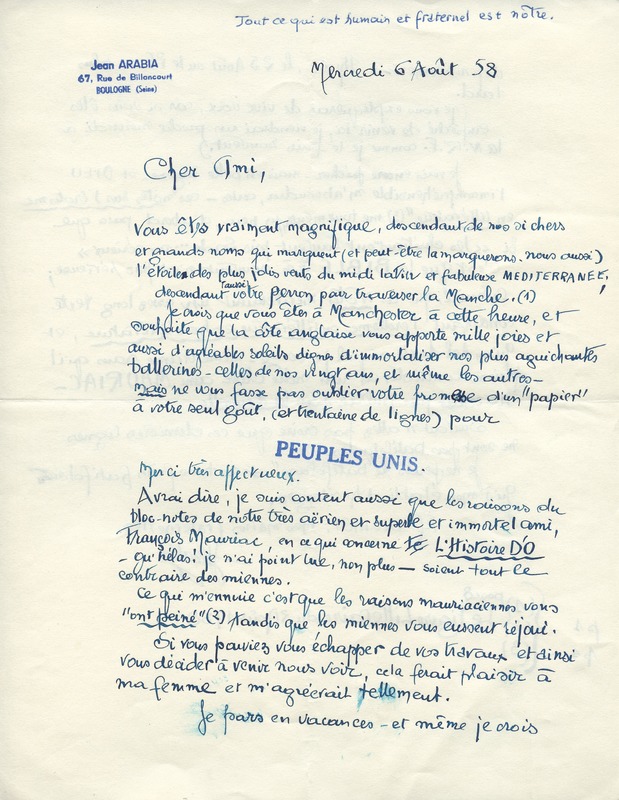 Tout ce qui est humain et fraternel est nôtre.
Jean ARABIA
67, Rue de Billancourt
BOULOGNE (Seine)
Mercredi 6 Août 58
Cher Ami,
Vous êtes vraiment magnifique, descendant de nos si chers
et grands noms qui marquent (et peut-être la marquerons-nous aussi)
l'étoile des plus jolis vents du midi latin et fabuleuse MEDITERRANEE,
descendant aussi votre perron pour traverser la Manche. (1)
Je crois que vous êtes à Manchester à cette heure, et
souhaite que la côte anglaise vous apporte mille joies et
aussi d'agréables soleils dignes d'immortaliser nos plus aguichantes
ballerines - celles de nos vingt ans, et même les autres -
mais ne vous fasse pas oublier votre promesse d'un "papier"
à votre seul goût, (et trentaine de lignes) pour
PEUPLES UNIS.
Merci très affectueux.
A vrai dire, je suis content aussi que les raisons du
bloc-notes de notre très aérien et superbe et immortel ami,
François Mauriac, en ce qui concerne L'Histoire D'O
- qu'hélas! je n'ai point lue, non plus — soient tout le
contraire des miennes.
Ce qui m'ennuie c'est que les raisons mauriaciennes vous
"ont peiné" (2) tandis que les miennes vous eussent réjoui.
Si vous pouviez vous échapper de vos travaux et ainsi
vous décider à venir nous voir, cela ferait plaisir à
ma femme et m'agréerait tellement.
Je pars en vacances - et même je crois